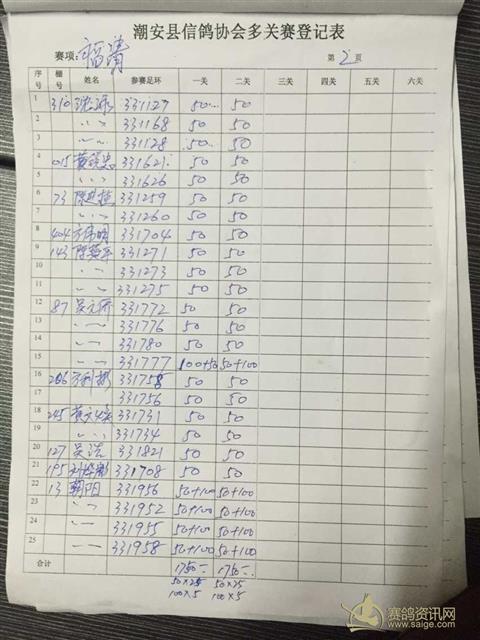 潮安县信鸽协会多关赛登记表
赛项: 福清 第 2 页
序号 棚号 姓名 参赛足环 一关 二关 三关 四关 五关 六关
1 310 331127 50 50
2 〃 331168 50 50
3 〃 331128 50 50
4 015 331621 50 50
5 〃 331626 50 50
6 73 331259 50 50
7 〃 331260 50 50
8 404 331704 50 50
9 143 331271 50 50
10 〃 331273 50 50
11 〃 331275 50 50
12 87 331772 50 50
13 〃 331776 50 50
14 〃 331780 50 50
15 〃 331777 100+50 50+100
16 206 331758 50 50
17 331756 50 50
18 245 331731 50 50
19 〃 331734 50 50
20 127 吴浩 331821 50 50
21 195 331708 50 50
22 13 朝阳 331956 50+100 50+100
23 〃 331952 50+100 50+100
24 〃 331955 50+100 50+100
25 〃 331958 50+100 50+100
合计 1750- 1750-
50×25 50×25
100×5 100×5
赛鸽资讯网
www.saige.com